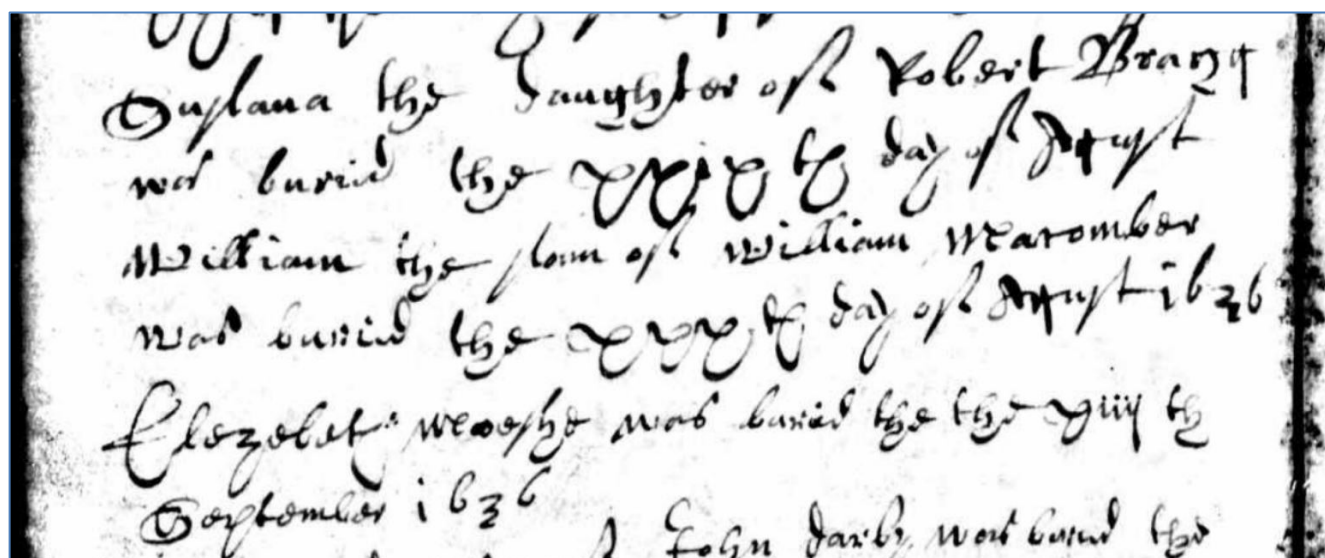 Suslana the daughter off Robert Bragg
wasburid the xxix th day off August
William the sonn off William Macomber
was burid the xxx th day off August 1636
Elezebet was burid the the xiiij th
September 1636
John darby was burid the